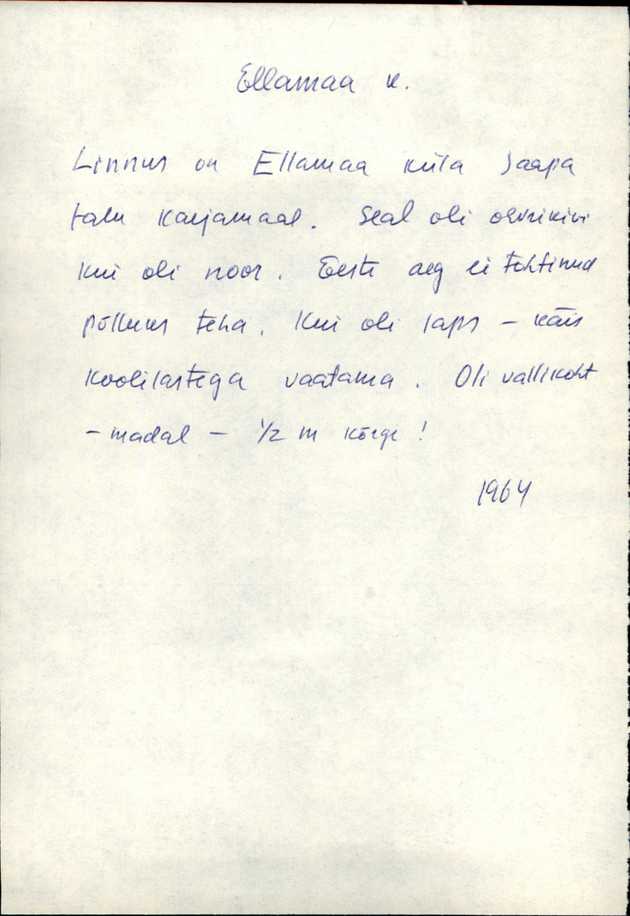 Ellamaa k.
Linnus on Ellamaa küla Jaapa
talu karjamaal. Seal oli ohvrikivi
kui oli noor. Eesti aeg ei tohtinud
põlluks teha. Kui oli laps – käis
koolilastega vaatama. Oli vallikoht
– madal – 1/2 m kõrge!
1964